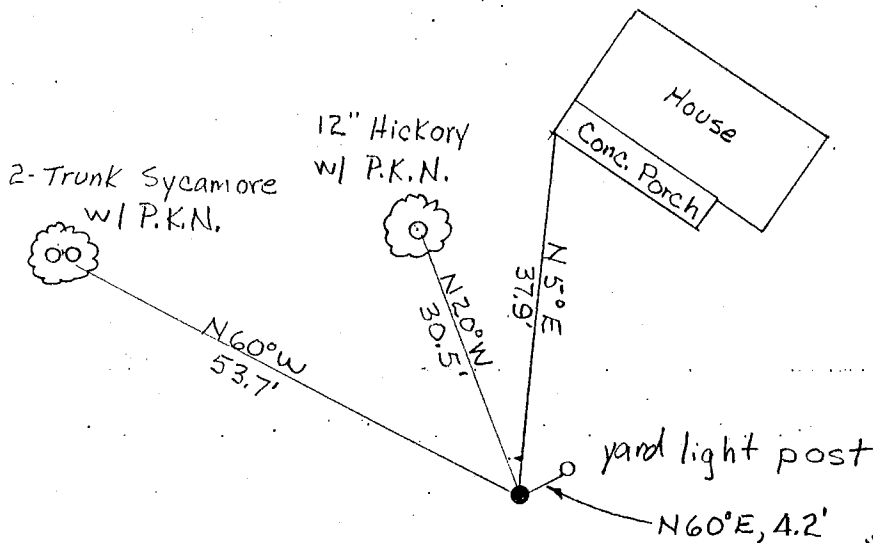 House
Conc. Porch
12" Hickory
w/ P.K.N.
2-Trunk Sycamore
w/ P.K.N.
N5°E
37.9'
N20°W
30.5'
N60°W
53.7'
yard light post
N60°E, 4.2'